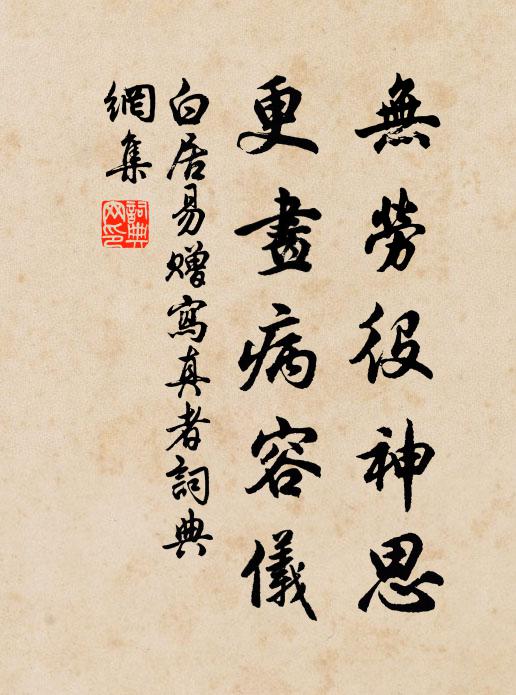 無勞役神思
更畫病容儀
白居易贈寫真者詞典
網集
詞典
网印